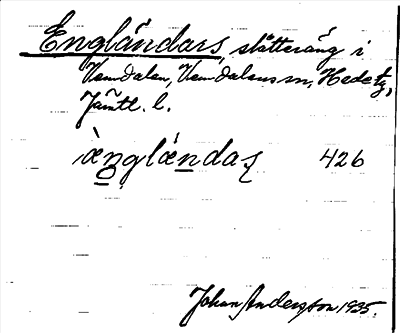 Engländars, slåtteräng i
Vemdalen, Vemdalens sn, Hede tg,
Jämtl. l.
ä̀ŋglä́ndaş 426
Johan Andersson 1935.